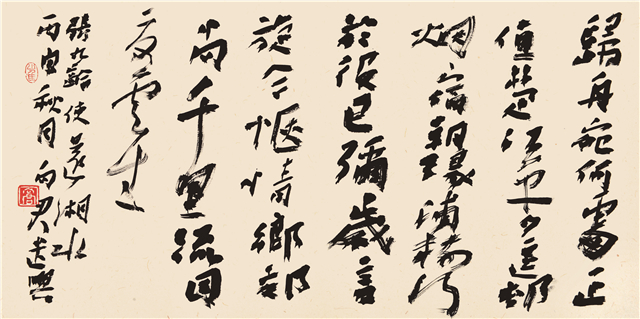 歸舟宛何處正
值楚江平夕逗邨
烟宿朝緣浦樹行
於役已彌歲言
旋今愜情鄉郊
尚千里流目
夏雲生
張九齡使還湘水
丙寅秋月